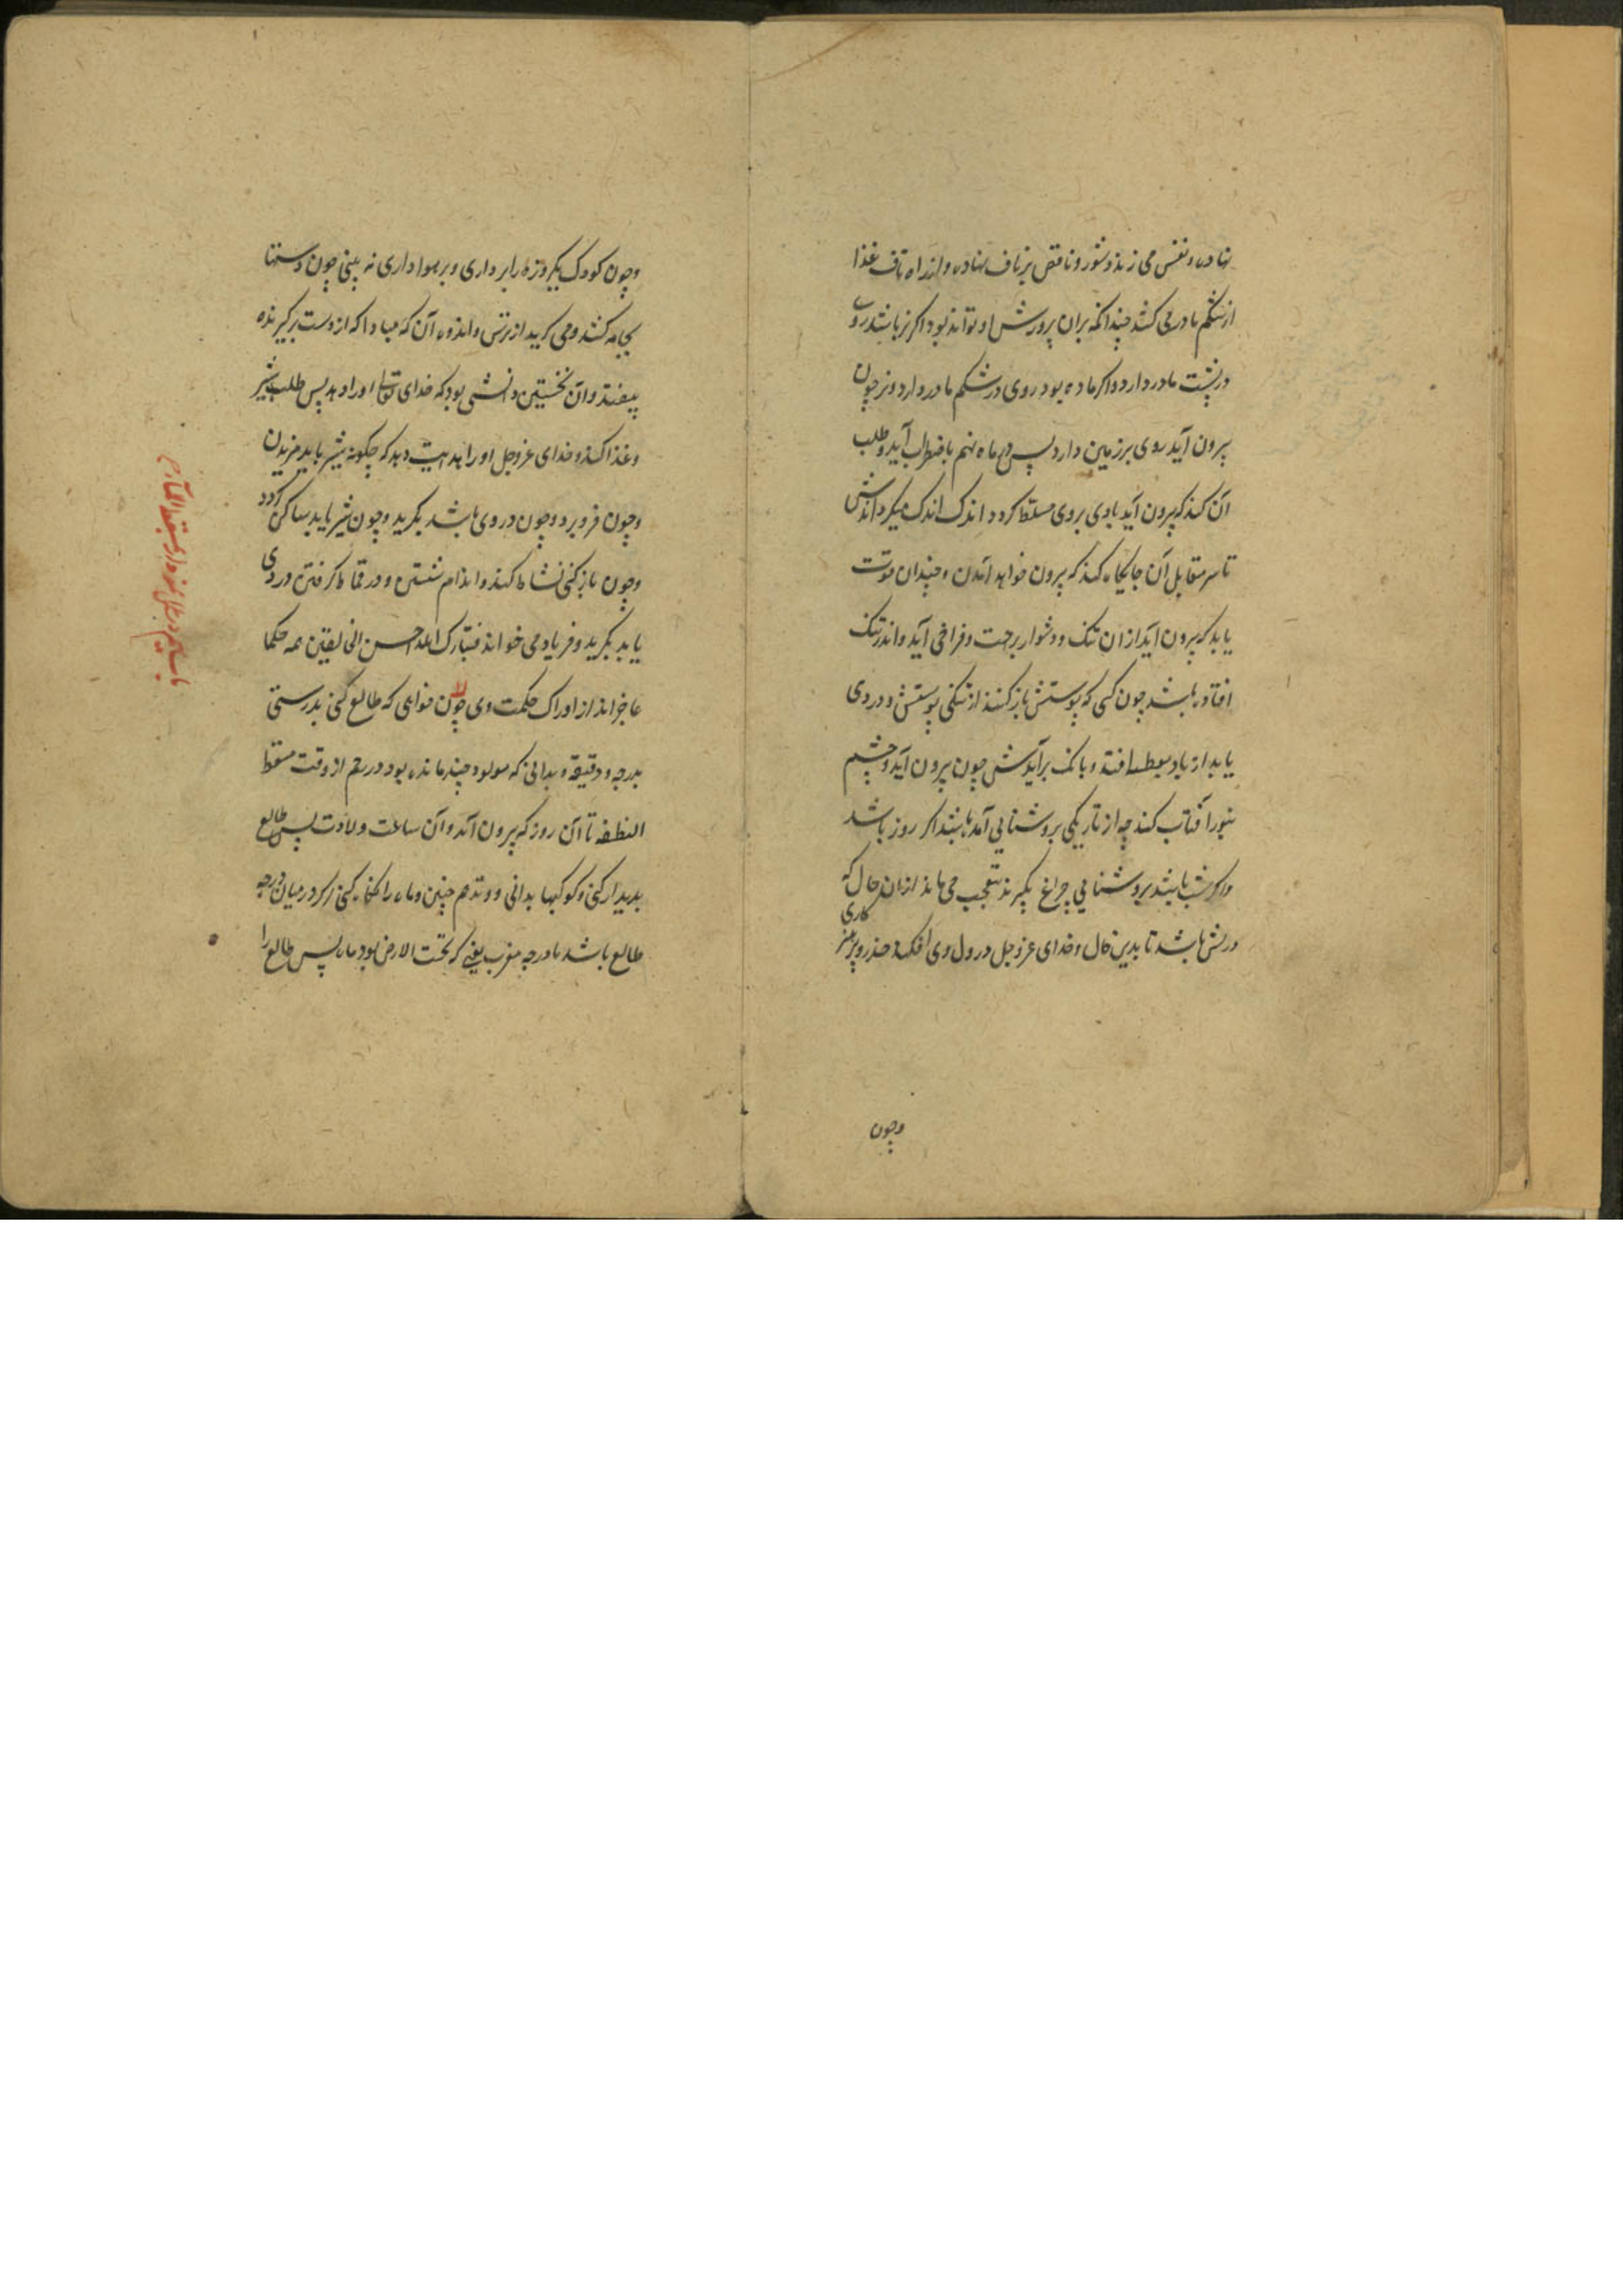 نهاده و نفس می زند دشور و ناقص بر ناف نهاده و از راه ناف غذا
از شکم مادر می کشد چندانکه بران پرورش او تواند بود اکر نر باشد روی
در پشت مادر دارد و اکر ماده بود روی در شکم مادر دارد و نر چون
بیرون آید روی بر زمین دارد پس ماه نهم باضطراب آید و طلب
آن کند که بیرون آید بادی بروی مسلط کردد اندک اندک میکرداندش
تا سر مقابل آن جایکاه کند که بیرون خواهد آمدن و چندان قوت
یابد که بیرون آید از ان تنک و دشوار براحت و فراخی آید و اندر تنک
افتاده باشد چون کسی که پوستش باز کنند از تنکی پوستش و دردی
یابد از باد بعطسه افتد و بانک برآیدش چون بیرون آید و چشم
بنور آفتاب کند چه از تاریکی بروشنایی آمده باشد اکر روز باشد
و اکر شب باشد بروشنایی چراغ بکیرند متعجب می ماند از ان حال که
درش باشد تا بدین حال و خدای عزوجل در دل وی افکند حذر و پرهیز
کاری
وچون
وچون کودک یکروزه را برداری و بر هوا داری نه بینی چون دستها
بجامه کشد و می کرید از ترس و اندوه آن که مبادا که از دست برکیرنده
بیفتد و آن نخستین دانشی بود که خدای تعالی او را دهد پس طلب شیر
و غذا کند و خدای عزوجل او را هدایت دهد که چکونه شیر باید مزیدن
وچون فرو برد وچون در وی باشد بکرید وچون شیر یابد ساکن کردد
وچون باز کنی نشاط کند و اندام شستن و در قماط کرفتن دردی
یابد بکرید و فریاد می خواند فتبارک الله احسن الخالقین همه حکما
عاجزاند از ادراک حکمت وی چون خواهی که طالع کنی بدرستی
بدرجه و دقیقه و بدانی که مولود چند مانده بود در رحم از وقت مسقط
النطفه تا آن روز که بیرون آمد و آن ساعت ولادت پس طالع
بدیدار کنی و کوکبها بدانی و وتد هم چنین و ماه را نکاه کنی اکر در میان درجه
طالع باشد تا درجه مغرب یعنی که تحت الارض بود ماه پس طالع را